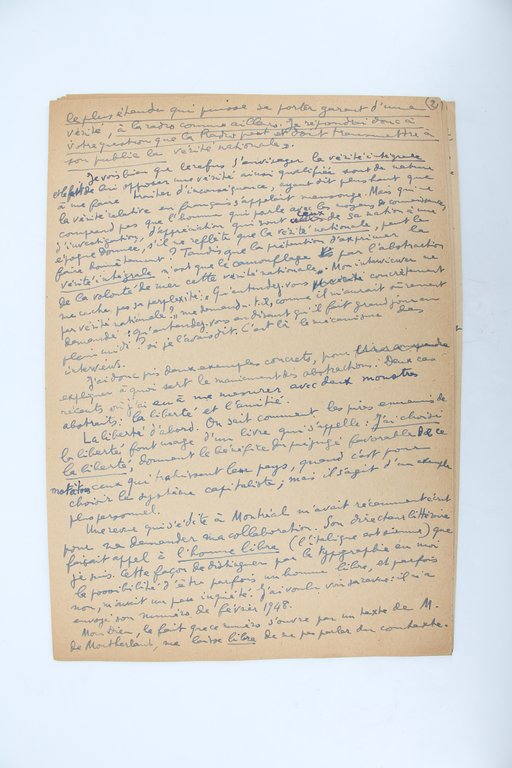 le plus étendu qui puisse se porter garant d'une (2)
vérité, à la radio comme ailleurs. Je répondrai donc à
votre question que la Radio peut et doit transmettre à
son public la vérité nationale ».
Je vois bien que le refus d'envisager la vérité intégrale
et le fait de lui opposer une vérité ainsi qualifiée sont de nature
à me faire traiter d'inconséquence, ayant dit plus haut que
la vérité relative en français s'appelait mensonge. Mais qui ne
comprend pas que l'homme qui parle avec les moyens de connaissance,
d'investigation, d'appréciation qui sont ceux de sa nation à une
époque donnée, s'il ne reflète que la vérité nationale, peut le
faire honnêtement ? Tandis que la prétention d'exprimer la
vérité intégrale n'est que le camouflage par l'abstraction
de la volonté de nier cette vérité nationale. Mon interviewer ne
me cache pas sa perplexité : « Qu'entendez-vous concrètement
par vérité nationale ? » me demanda-t-il, comme il m'aurait sûrement
demandé : « qu'entendez-vous en disant qu'il fait grand jour en
plein midi ? » si je l'avais dit. C'est là le mécanisme des
interviews.
J'ai donc pris deux exemples concrets, pour
expliquer à quoi sert le maniement des abstractions. Deux cas
récents où j'ai eu à me mesurer avec deux monstres
abstraits : la liberté et l'amitié.
La liberté d'abord. On sait comment les pires ennemis de
la liberté font usage d'un livre qui s'appelle : J'ai choisi
la liberté, donnant le bénéfice du préjugé favorable de ce
mot à tous ceux qui trahissent leur pays, quand c'est pour
choisir le système capitaliste ; mais il s'agit d'un exemple
plus personnel.
Une revue qui s'édite à Montréal m'avait récemment écrit
pour me demander ma collaboration. Son directeur littéraire
faisait appel à l'homme libre (l'italique est sienne) que
je suis. Cette façon de distinguer par la typographie en moi
la possibilité d'être parfois un homme libre, et parfois
non, m'avait un peu inquiété. J'ai voulu voir sa revue : il m'a
envoyé son numéro de février 1948.
Mon Dieu, le fait que ce numéro s'ouvre par un texte de M.
de Montherlant, me laisse libre de ne pas parler du contexte.